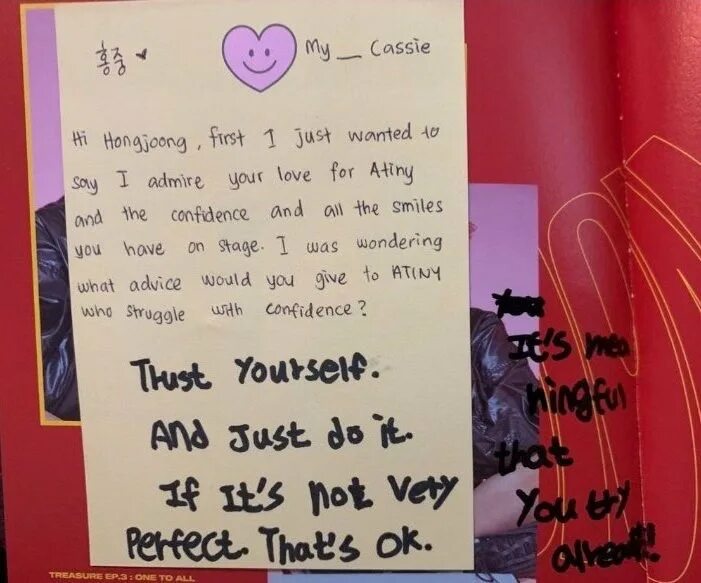 홍중 ♥
My __ Cassie
Hi Hongjoong, first I just wanted to
say I admire your love for Atiny
and the confidence and all the smiles
you have on stage. I was wondering
what advice would you give to ATINY
who struggle with confidence?
Trust Yourself.
And Just do it.
If It's not Very
Perfect. That's OK.
It's mea
ningful
that
You try
already!
TREASURE EP.3 : ONE TO ALL